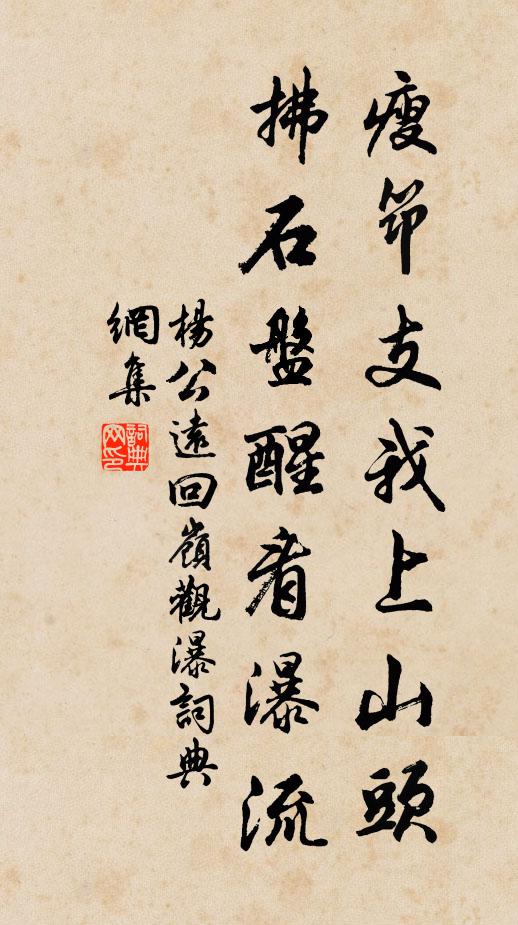 瘦筇支我上山頭
拂石盤醒看瀑流
楊公遠回嶺觀瀑詞典
網集
詞典網印